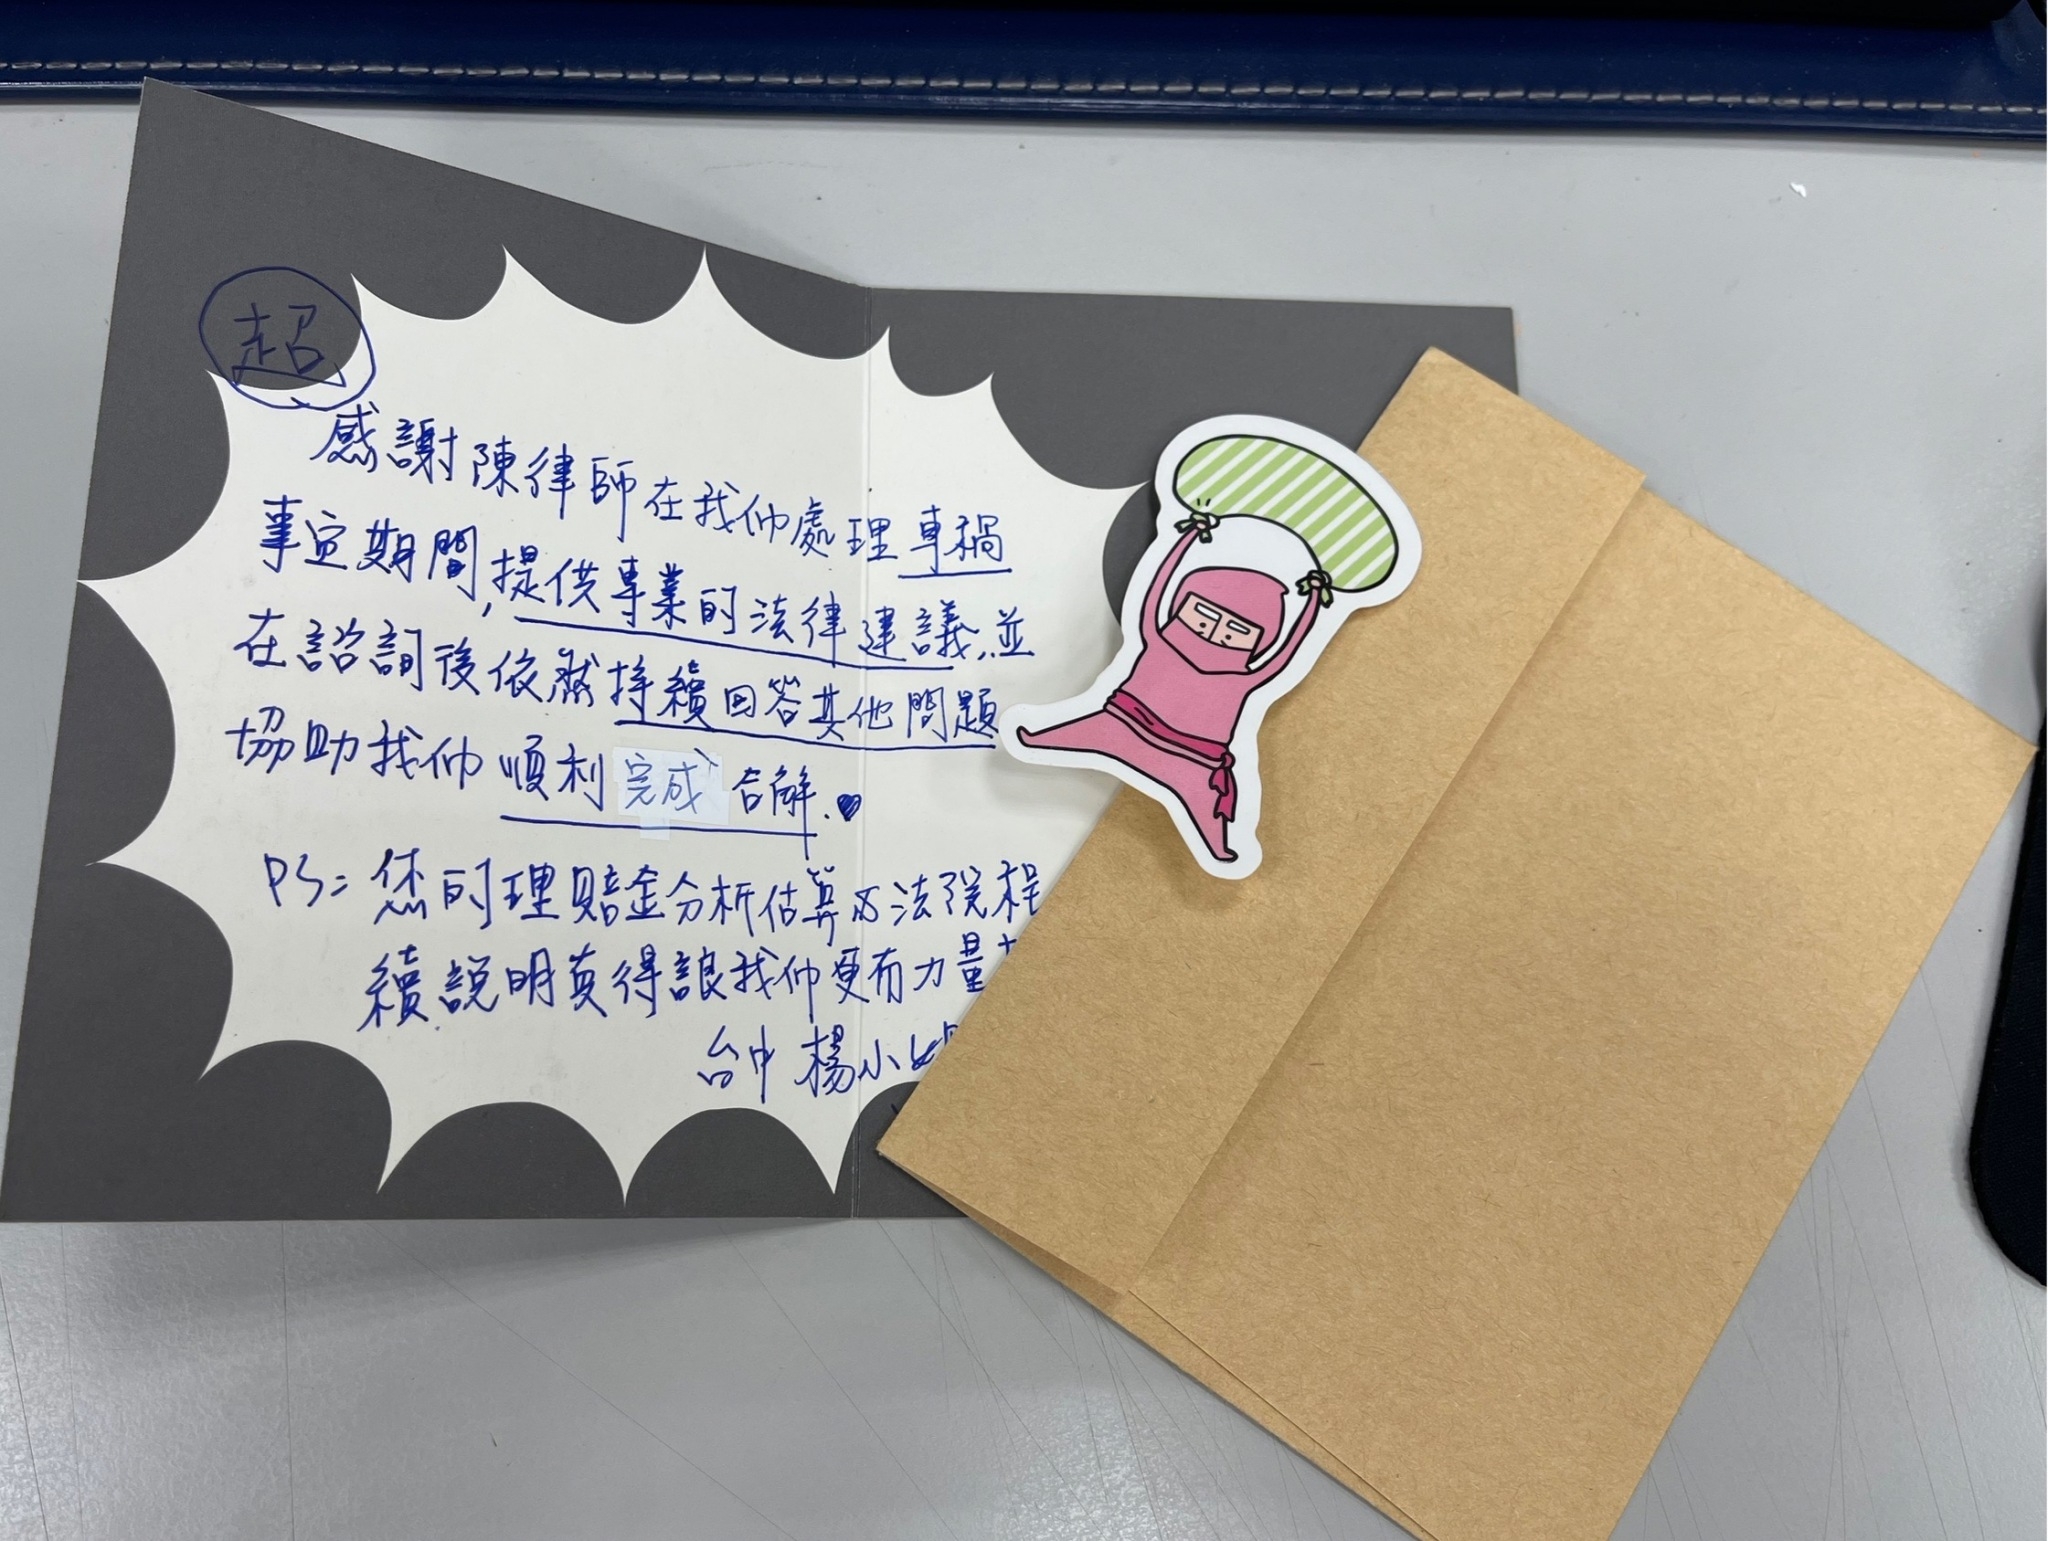 超
感謝陳律師在我们處理車禍
事宜期間,提供專業的法律建議,並
在諮詢後依然持續回答其他問題
協助我们順利完成合解.♥
PS=您的理賠金分析估算及法院程
續說明真得讓我们更有力量
台中 楊小姐